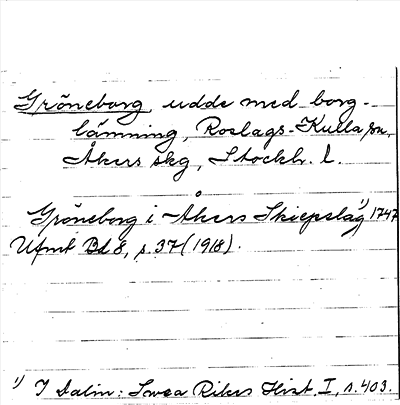 Gröneborg, udde med borg-
lämning, Roslags-Kulla sn,
Åkers skg, Stockh. l.
Gröneborg i Åkers Skiepslag 1) 1747
Ufmt Bd 8, s. 37 (1918).
1) I Dalin: Swea Rikes Hist. I, s. 403.